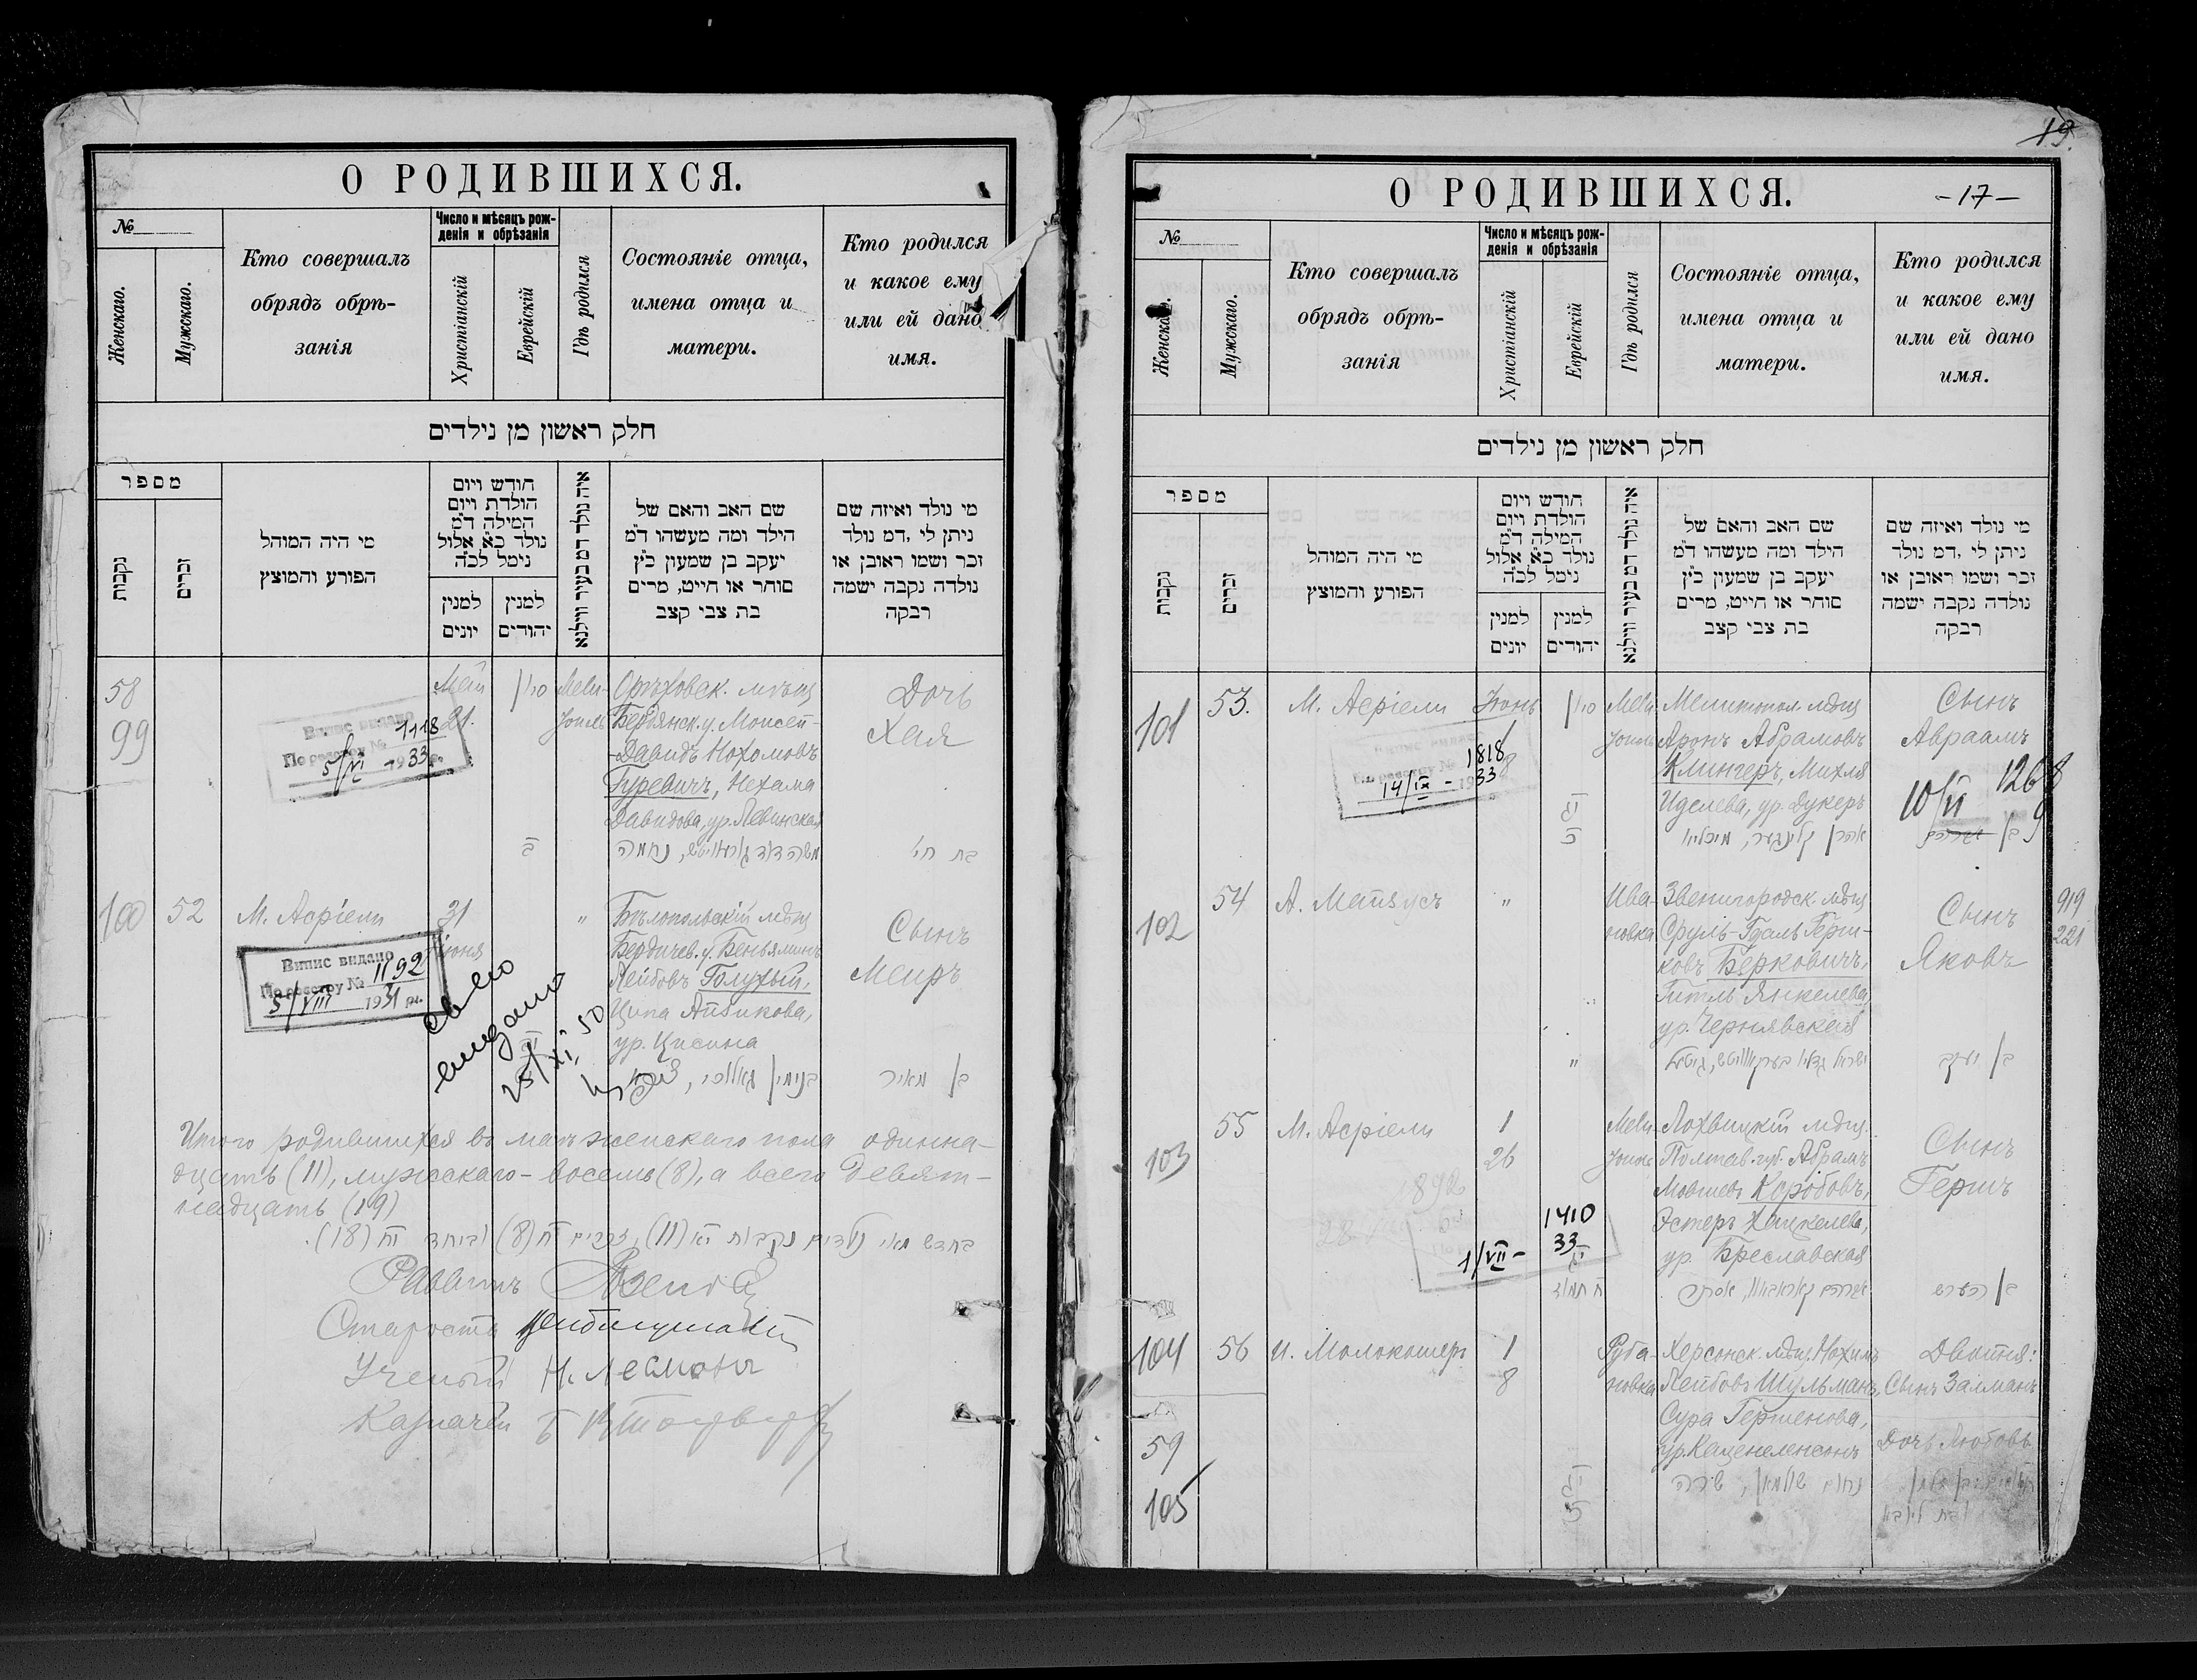 О РОДИВШИХСЯ.
№
Женскаго.
Мужскаго.
Кто совершалъ
обрядъ обрѣ-
занія
Число и мѣсяцъ рож-
денія и обрѣзанія
Христіанскій
Еврейскій
Гдѣ родился
Состояніе отца,
имена отца и
матери.
Кто родился
и какое ему
или ей дано
имя.
חלק ראשון מן נילדים
מספר
נקבות
זכרים
מי היה המוהל
הפורע והמוצץ
חודש ויום
הולדת ויום
המילה ד״מ
נולד כ״א אלול
נימל לכ״ה
למנין
יונים
למנין
יהודים
איה נולד דמ בעיר ווילנא
שם האב והאם של
הילד ומה מעשהו ד״מ
יעקב בן שמעון כ״ץ
סוחר או חייט, מרים
בת צבי קצב
מי נולד ואיזה שם
ניתן לי ,דמ נולד
זכר ושמו ראובן או
נולדה נקבה ישמה
רבקה
58
99
Май
21.
סיון
Мели-
тополь
Орѣховск. мѣщ
Бердянск. у. Моисей-
-Давидъ Нохомовъ
Гуревичъ, Нехама
Давидова, ур. Левинская
Дочь
Хая
Випис видано
По реестру № 1118
5/VI - 1933 р.
בת חי'
100
52
М. Асріели
31
іюня
"
Бѣлопольскій мѣщ
Бердичев. у. Беньяминъ
Лейбовъ Голухый,
Ципа Айзикова,
ур. Цисина
Сынъ
Меиръ
Випис видано
По реестру № 1192
5/VIII 1931 р.
св-во
выдано
25/XI 50
בן מאיר
Итого родившихся въ маѣ женскаго пола одинна-
дцать (11), мужскаго - восемь (8), а всего девят-
надцать (19)
בחדש מאי נולדים נקבות יא (11), זכרים ח (8) וביחד יח (18).
Раввинъ
Староста
Ученый Н. Лесманъ
Казначей
19.
О РОДИВШИХСЯ.
-17-
№
Женскаго.
Мужскаго.
Кто совершалъ
обрядъ обрѣ-
занія
Число и мѣсяцъ рож-
денія и обрѣзанія
Христіанскій
Еврейскій
Гдѣ родился
Состояніе отца,
имена отца и
матери.
Кто родился
и какое ему
или ей дано
имя.
חלק ראשון מן נילדים
מספר
נקבות
זכרים
מי היה המוהל
הפורע והמוצץ
חודש ויום
הולדת ויום
המילה ד״מ
נולד כ״א אלול
נימל לכ״ה
למנין
יונים
למנין
יהודים
איה נולד דמ בעיר ווילנא
שם האב והאם של
הילד ומה מעשהו ד״מ
יעקב בן שמעון כ״ץ
סוחר או חייט, מרים
בת צבי קצב
מי נולד ואיזה שם
ניתן לי ,דמ נולד
זכר ושמו ראובן או
נולדה נקבה ישמה
רבקה
101
53.
М. Асріели
Іюнь
1
8
סיון
Мели-
тополь
Мелитопол. мѣщ
Аронъ Абрамовъ
Клингеръ, Михля
Иделева, ур. Дукеръ
Сынъ
Авраамъ
1818
14/IX - 1933
10/VI 1268
אהרן קלינגער, מיכליא
בן אברהם
102
54
А. Майзусъ
"
Ива-
новка
Звенигородск. мѣщ
Сруль-Гдаль Герш-
ковъ Берковичъ,
Гитль Янкелева,
ур. Чернявская
Сынъ
Яковъ
919
221
בן יעקב
103
55
М. Асріели
1
26
Мели-
тополь
Лохвицкій мѣщ.
Полтав. губ. Абрамъ
Мовшевъ Коробовъ,
Эстеръ Хацкелева,
ур. Бреславская
Сынъ
Гершъ
1892
1410
1/VII - 33
ח תמוז
בן הערש
104
56
И. Молокошеръ
1
8
Руба-
новка
Херсонск. мѣщ. Нохимъ
Лейбовъ Шульманъ,
Сура Гершенова,
ур. Каценеленсонъ
Двойня:
Сынъ Залманъ
Дочь Любовь
59
105
נחום שולמאן, שרה